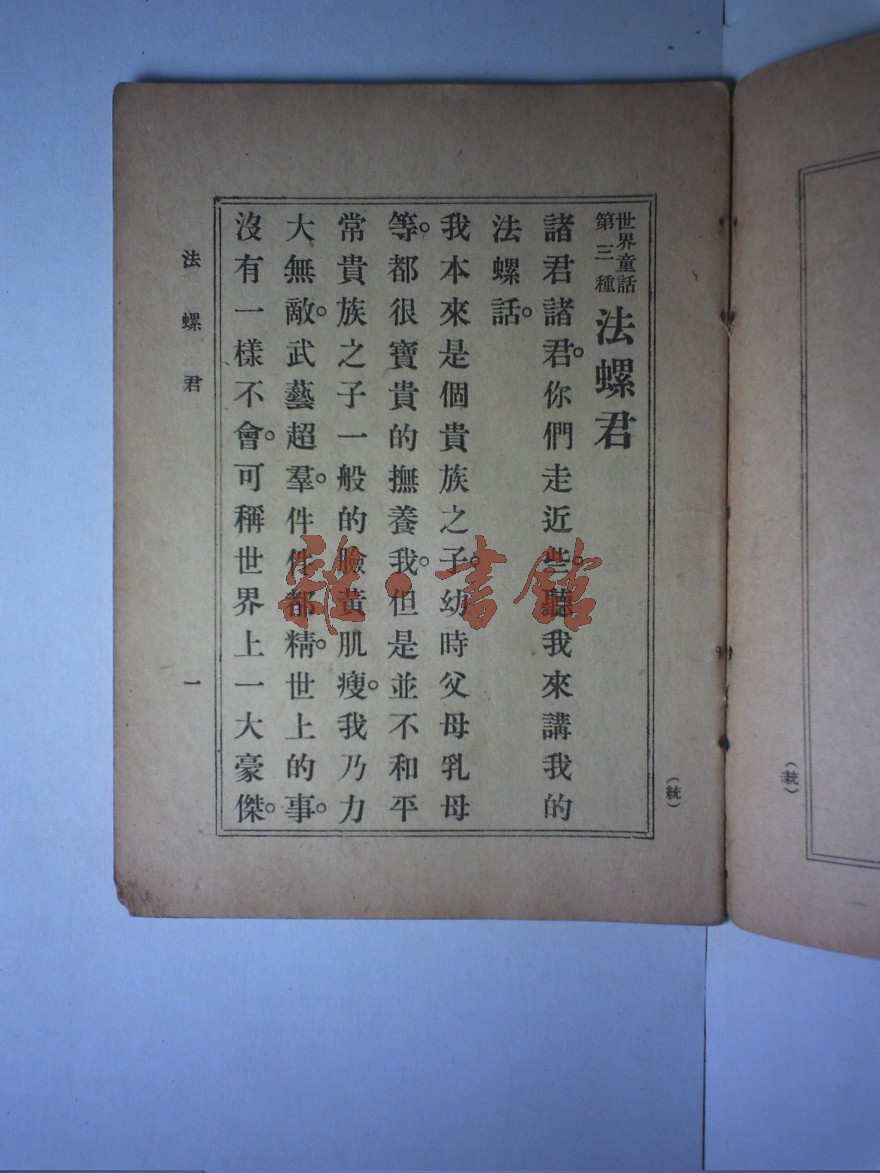 世界童話
第三種
法螺君
諸君諸君。你們走近些。聽我來講我的
法螺話。
我本來是個貴族之子。幼時父母乳母
等。都很寶貴的撫養我。但是並不和平
常貴族之子一般的臉黃肌瘦。我乃力
大無敵。武藝超羣。件件都精。世上的事。
沒有一樣不會。可稱世界上一大豪傑。
法螺君
一
（統）
（統）
雜·書館